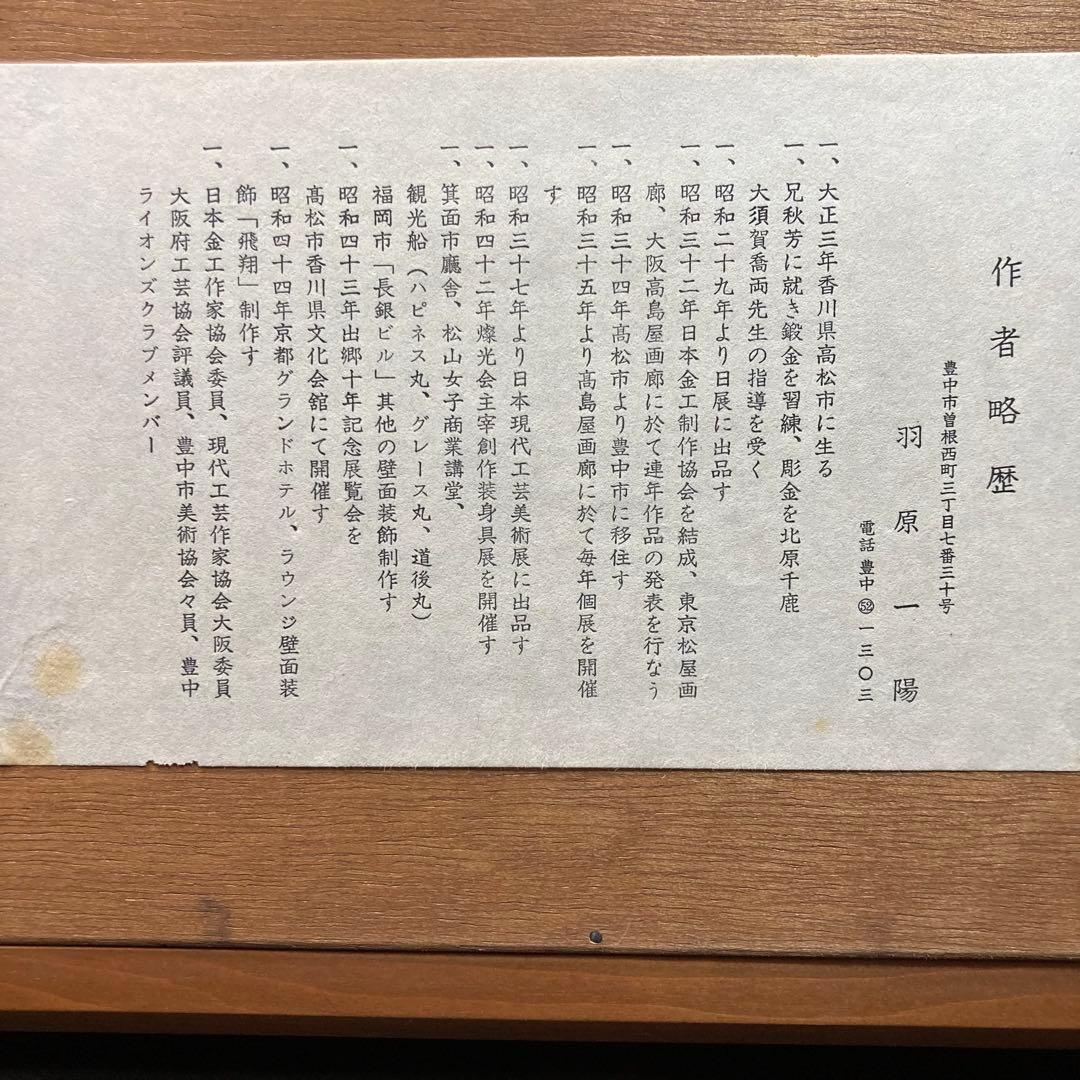 作者略歴
豊中市曽根西町三丁目七番三十号
羽原一陽
電話 豊中 ㊾一三〇三
一、大正三年香川県高松市に生る
一、兄秋芳に就き鍛金を習練、彫金を北原千鹿
大須賀喬両先生の指導を受く
一、昭和二十九年より日展に出品す
一、昭和三十二年日本金工制作協会を結成、東京松屋画
廊、大阪高島屋画廊に於て連年作品の発表を行なう
一、昭和三十四年髙松市より豊中市に移住す
一、昭和三十五年より髙島屋画廊に於て毎年個展を開催
す
一、昭和三十七年より日本現代工芸美術展に出品す
一、昭和四十二年燦光会主宰創作装身具展を開催す
一、箕面市廳舎、松山女子商業講堂、
観光船(ハピネス丸、グレース丸、道後丸)
福岡市「長銀ビル」其他の壁面装飾制作す
一、昭和四十三年出郷十年記念展覧会を
髙松市香川県文化会舘にて開催す
一、昭和四十四年京都グランドホテル、ラウンジ壁面装
飾「飛翔」制作す
一、日本金工作家協会委員、現代工芸作家協会大阪委員
大阪府工芸協会評議員、豊中市美術協会々員、豊中
ライオンズクラブメンバー